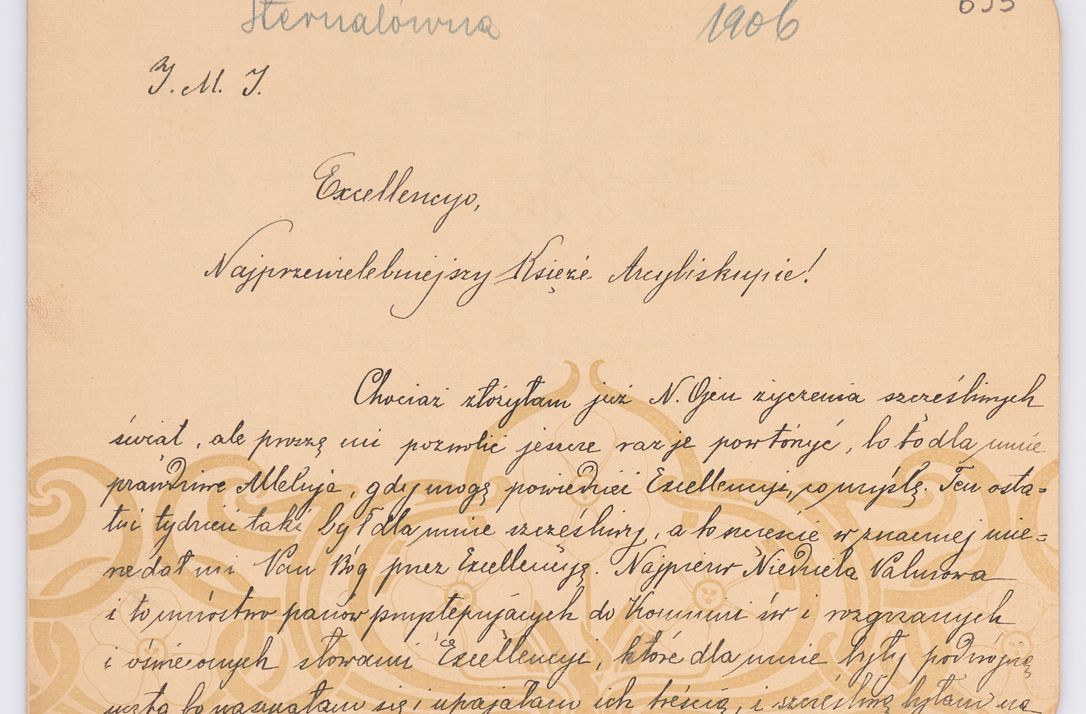 Sternalówna 1906 655
J. M. J.
Excellencyo,
Najprzewielebniejszy Księże Arcybiskupie!
Chociaż złożyłam już N. Ojcu życzenia szczęśliwych
świąt, ale proszę mi pozwolić jeszcze raz je powtórzyć, bo to dla mnie
prawdziwe Alleluja, gdy mogę powiedzieć Excellencyi, co myślę. Ten osta=
tni tydzień taki był dla mnie szczęśliwy, a to szczęście w znacznej mie=
rze dał mi Pan Bóg przez Excellencyę. Najpierw Niedziela Palmowa
i to mnóstwo panów przystępujących do Komunii św i rozgrzanych
i oświeconych słowami Excellencyi, które dla mnie były podwójną
ucztą bo nasycałam się i upajałam ich treścią, i szczęśliwą byłam na